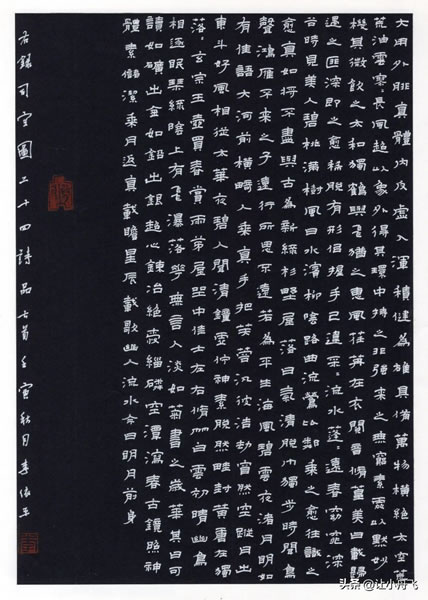 大用外腓真體內充反虛入渾積健為雄具備萬物橫絕太空荒
荒油雲寥寥長風超以象外得其環中持之非強來之無窮素處以默妙
機其微飲之太和獨鶴與飛猶之惠風荏苒在衣閱音修篁美曰載歸
遇之匪深即之愈稀脫有形侣握手已違采采流水蓬蓬遠春窈窕深
谷時見美人碧桃滿樹風日水濱柳陰路曲流鶯比鄰乘之愈往識之
愈真如將不盡與古為新綠杉野屋落日氣清脫巾獨步時聞鳥
聲鴻雁不來之子遠行所思不遠若為平生海風碧雲夜渚月明如
有佳語大河前橫疇人乘真手把芙蓉汎彼浩劫窅然空蹤月出
東斗好風相從太華夜碧人聞清鐘虛佇神素脫然畦封黃唐在獨
落落玄宗玉壺買春賞雨茅屋坐中佳士左右脩竹白雲初晴幽鳥
相逐眠琴綠陰上有飛瀑落花無言人淡如菊書之歲華其曰可
讀如礦出金如鉛出銀超心鍊冶絕愛緇磷空潭瀉春古鏡照神
體素儲潔乘月返真載瞻星辰載歌幽人流水今日明月前身
右錄司空圖二十四詩品七首壬寅秋月李
头条 @让小舟飞